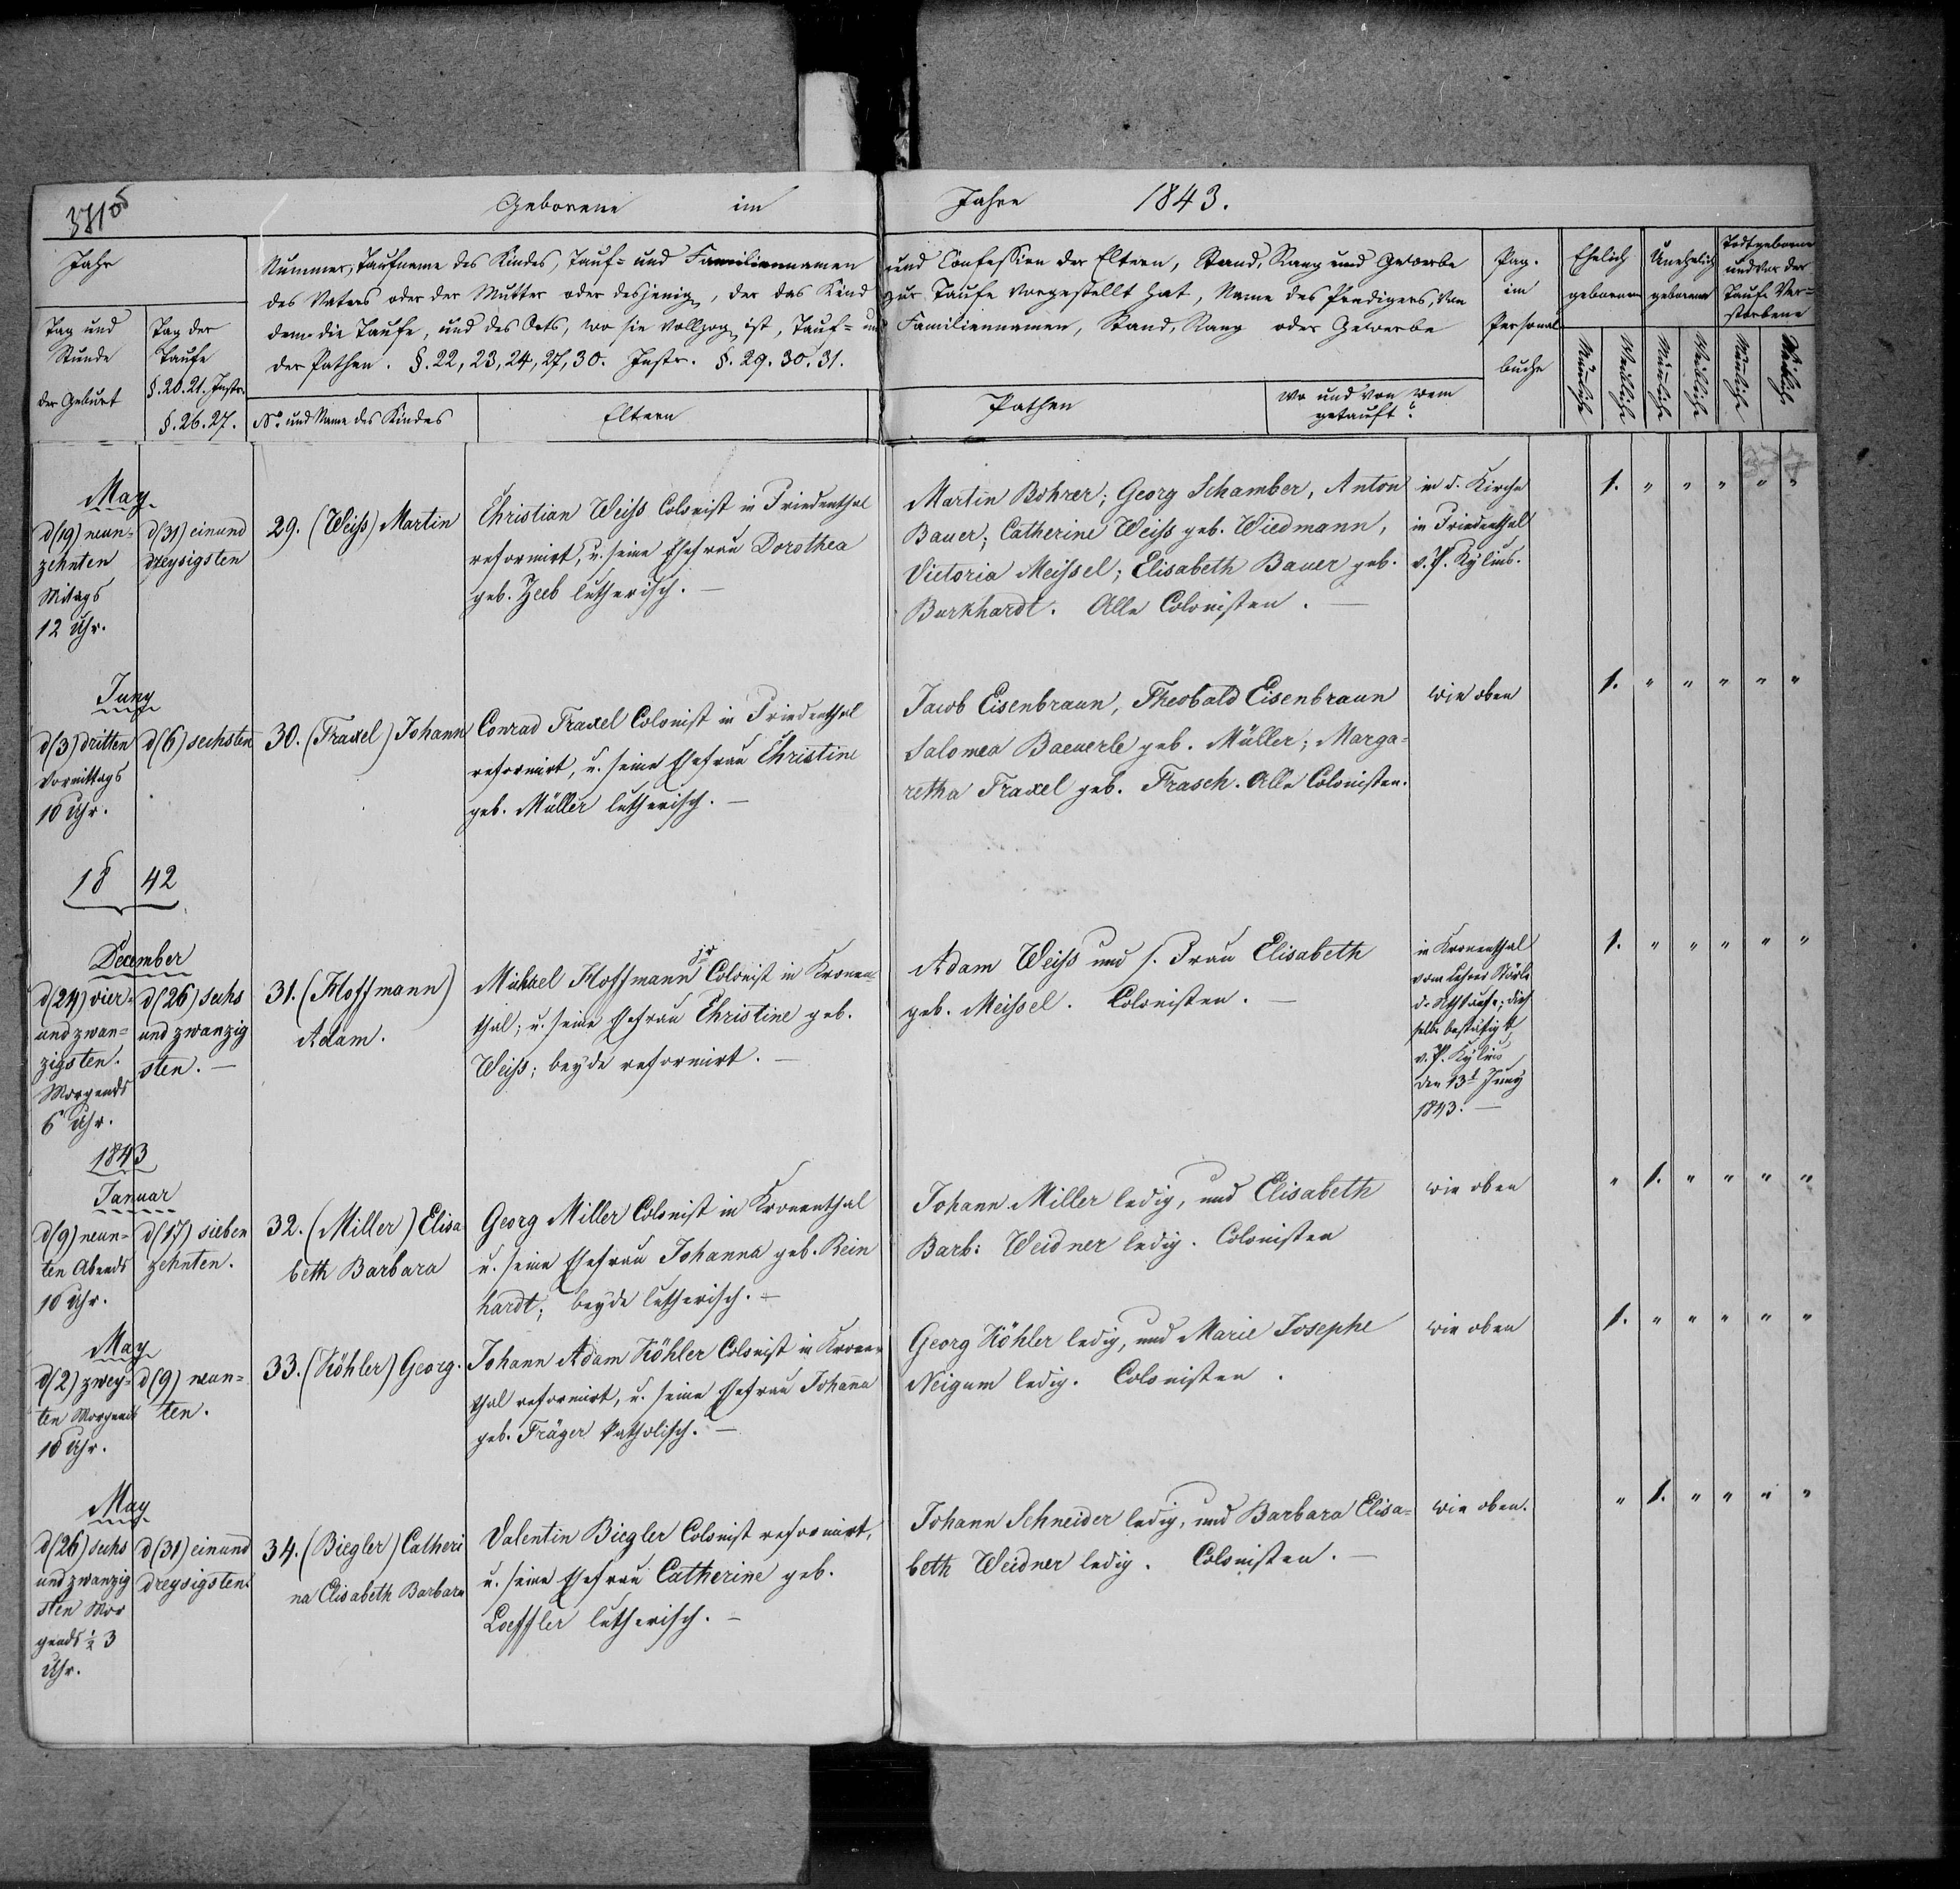 Geborene im Jahre 1843.
Jahr
Tag und
Stunde
der Geburt
Tag der
Taufe
§.20.21. Instr.
§.26.27.
Nummer, Taufname des Kindes, Tauf- und Familiennamen
des Vaters oder der Mutter oder desjenig, der das Kind
dem die Taufe, und des Orts, wo sie vollzog ist, Tauf- und
der Pathen. §.22, 23, 24, 27, 30. Instr. §.29. 30. 31.
No. und Name des Kindes
Eltern
und Confession der Eltern, Stand, Rang und Gewerbe
zur Taufe vorgestellt hat, Name des Predigers, von
Familiennamen, Stand, Rang oder Gewerbe
Pathen
wo und von wem
getauft?
Pag.
im
Personal
buche
Ehelich
geborene
Unehelich
geborene
Todtgeborene
und vor der
Taufe Ver-
storbene
Männliche
Weibliche
Männliche
Weibliche
Männliche
Weibliche
May
d(19) neun-
zehnten
Mitags
12 Uhr.
d(31) einund
dreysigsten
29. (Weiss) Martin
Christian Weiss Colonist in Friedenthal
reformirt, u. seine Ehefrau Dorothea
geb. Zeeb lutherisch. —
Martin Bohrer; Georg Schamber, Anton
Bauer; Catherine Weiss geb. Wiedmann,
Victoria Meissel; Elisabeth Bauer geb.
Burkhardt. Alle Colonisten. —
in d. Kirche
in Friedenthal
v. P. Kylius.
1. " " " " "
Juny
d(3) dritten
Vormittags
10 Uhr.
d(6) sechsten
30. (Traxel) Johann
Conrad Traxel Colonist in Friedenthal
reformirt, u. seine Ehefrau Christine
geb. Müller lutherisch. —
Jacob Eisenbraun, Theobald Eisenbraun
Salomea Baeuerle geb. Müller; Marga-
retha Traxel geb. Frasch. Alle Colonisten.
wie oben
1. " " " " "
1842
December
d(24) vier-
und zwan-
zigsten.
Morgends
6 Uhr.
d(26) sechs
und zwanzig
sten. —
31. (Hoffmann)
Adam.
Michael Hoffmann jr Colonist in Kronen-
thal; u. seine Ehefrau Christine geb.
Weiss; beyde reformirt. —
Adam Weiss und s. Frau Elisabeth
geb. Meissel. Colonisten. —
in Kronenthal
vom Lehrer
d. Nothtaufe; dies
selbe bestätigt
v. P. Kylius
den 13t Juny
1843. —
1. " " " " "
1843
Januar
d(9) neun-
ten Abends
10 Uhr.
d(17) sieben
zehnten.
32. (Miller) Elisa
beth Barbara
Georg Miller Colonist in Kronenthal
u. seine Ehefrau Johanna geb. Rein
hardt; beyde lutherisch. —
Johann Miller ledig, und Elisabeth
Barb: Weidner ledig. Colonisten
wie oben
" 1. " " " "
May
d(2) zwey-
ten Morgends
10 Uhr.
d(9) neun-
ten.
33. (Köhler) Georg.
Johann Adam Köhler Colonist in Kronen-
thal reformirt, u. seine Ehefrau Johanna
geb. Träger katholisch. —
Georg Köhler ledig, und Marie Josephe
Neigum ledig. Colonisten.
wie oben
1. " " " " "
May
d(26) sechs
und zwanzig
sten Mor
gends ½ 3
Uhr.
d(31) einund
dreysigsten
34. (Biegler) Catheri
na Elisabeth Barbara
Valentin Biegler Colonist reformirt,
u. seine Ehefrau Catherine geb.
Loeffler lutherisch. —
Johann Schneider ledig, und Barbara Elisa-
beth Weidner ledig. Colonisten. —
wie oben.
" 1. " " " "